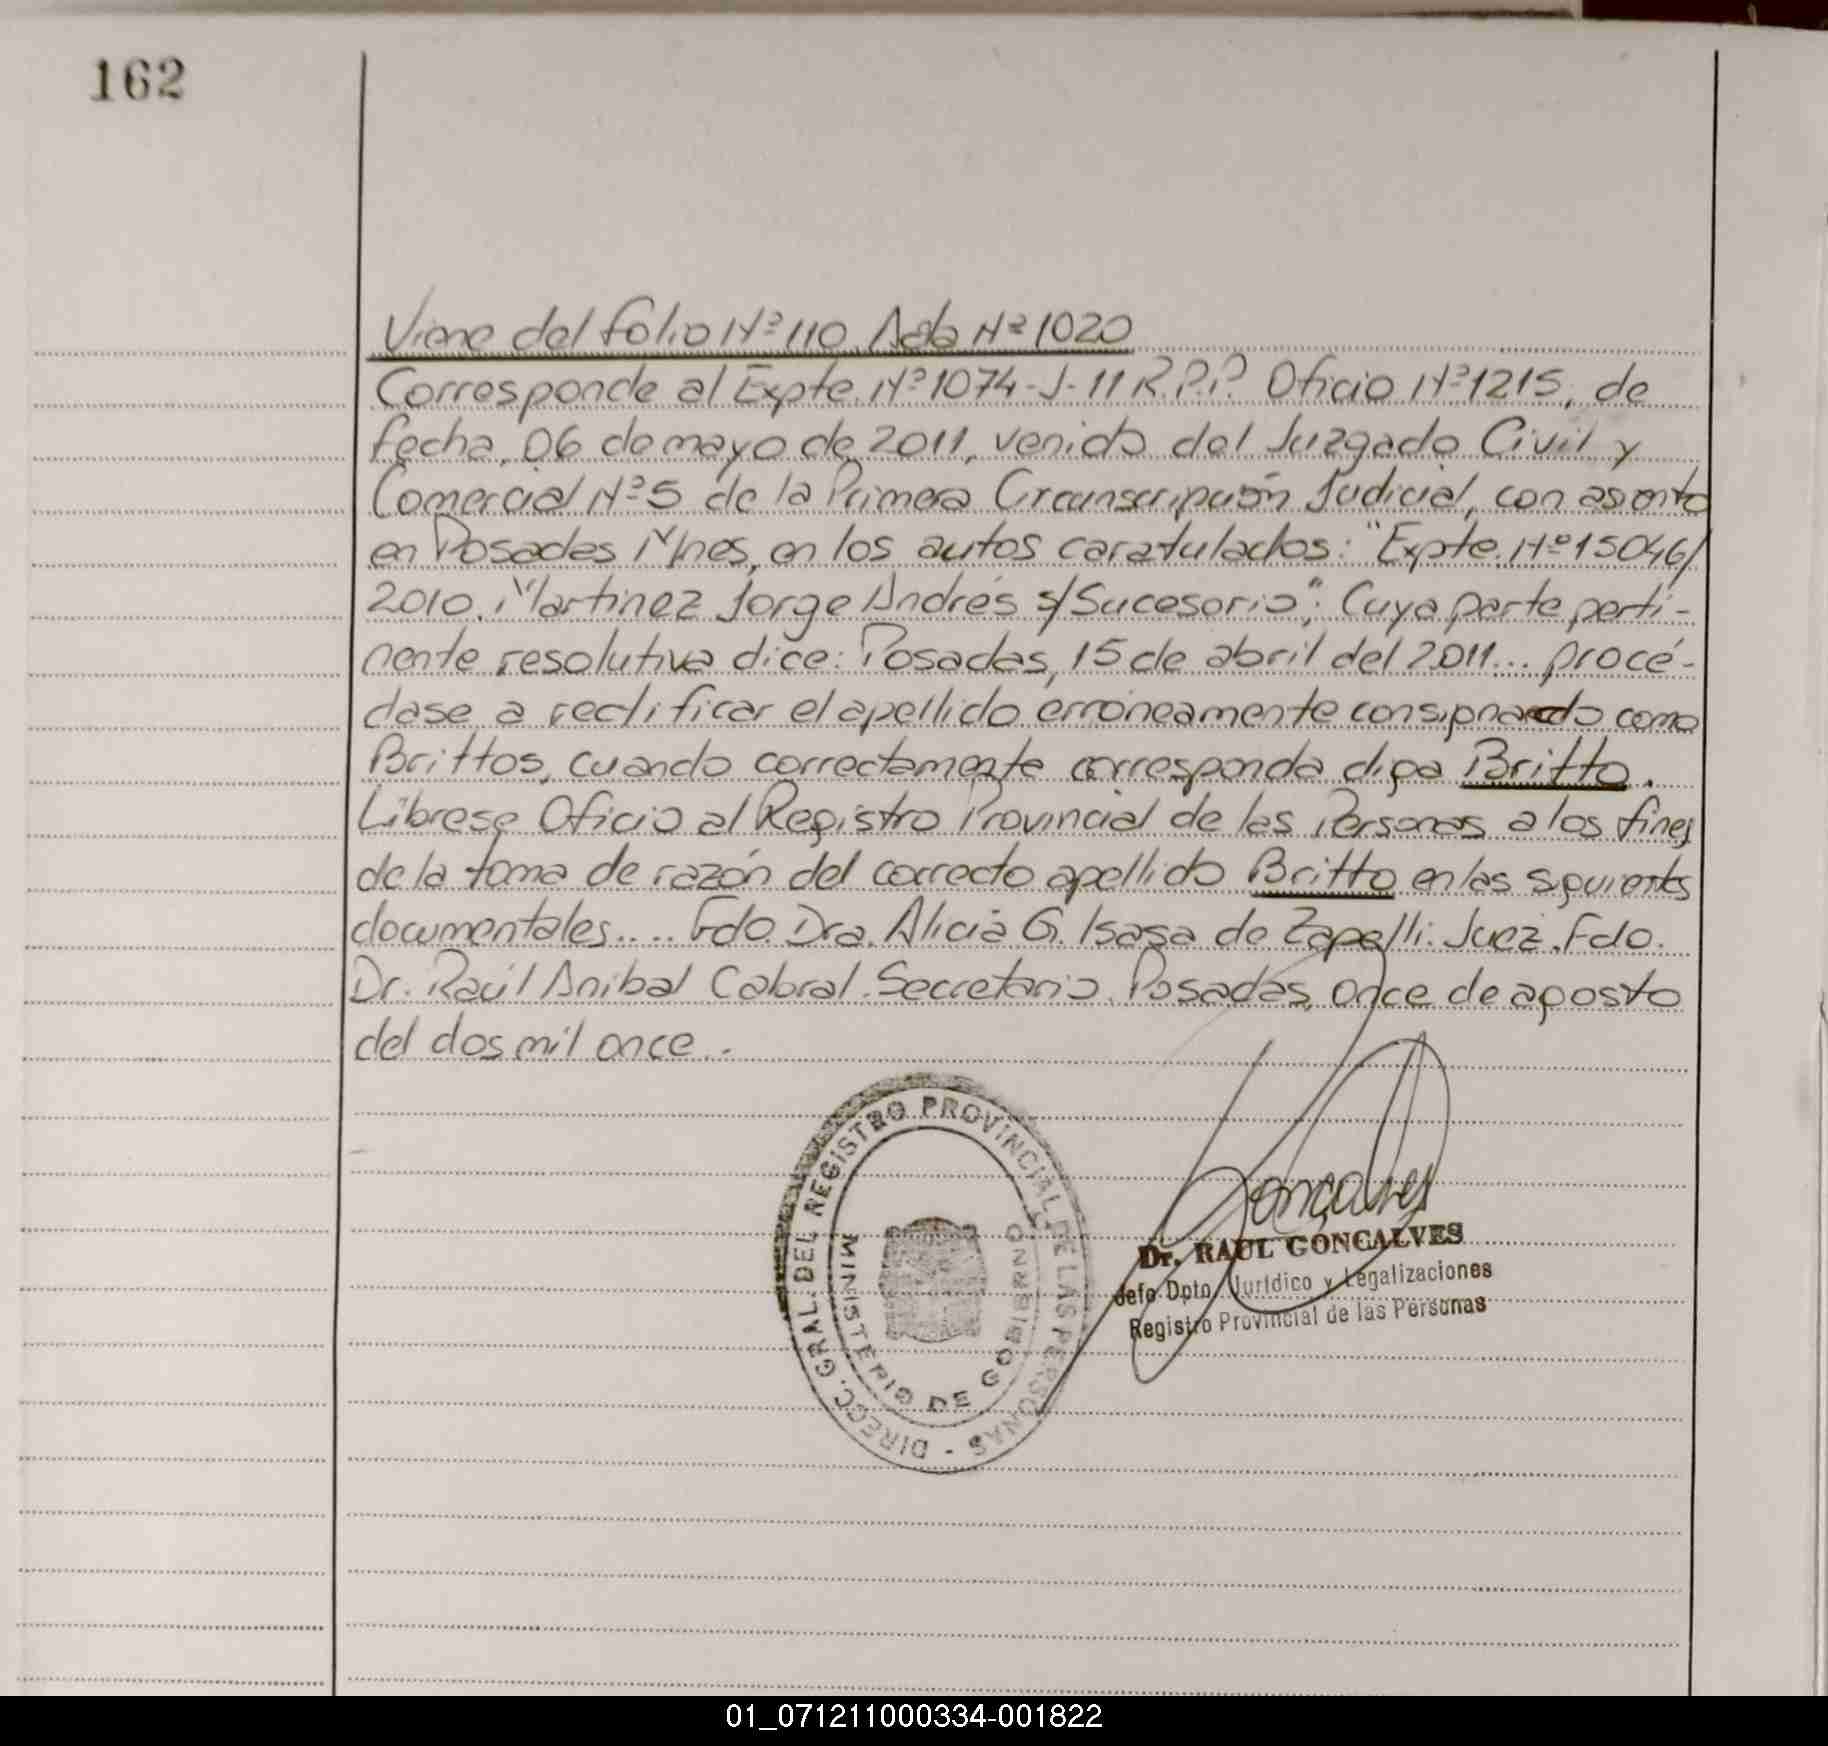 162
Viene del folio Nº 110. Acta Nº 1020
Corresponde al Expte. Nº 1074-J-11 R.P.P. Oficio Nº 1215, de
fecha, 06 de mayo de 2011, venido del Juzgado Civil y
Comercial Nº 5 de la Primera Circunscripción Judicial, con asiento
en Posadas Mnes, en los autos caratulados: "Expte. Nº 15046/
2010. Martinez Jorge Andrés s/Sucesorio"; Cuya parte perti-
nente resolutiva dice: Posadas, 15 de abril del 2011... procé-
dase a rectificar el apellido erróneamente consignado como
Brittos, cuando correctamente corresponda diga Britto.
Líbrese Oficio al Registro Provincial de las Personas a los fines
de la toma de razón del correcto apellido Britto en las siguientes
documentales.... Fdo. Dra. Alicia G. Isasa de Zapelli. Juez. Fdo.
Dr. Raúl Anibal Cabral. Secretario. Posadas, once de agosto
del dos mil once.-
DIRECC. GRAL. DEL REGISTRO PROVINCIAL DE LAS PERSONAS -
MINISTERIO DE GOBIERNO
Goncalves
Dr. RAUL GONCALVES
Jefe Dpto. Jurídico y Legalizaciones
Registro Provincial de las Personas
01_071211000334-001822